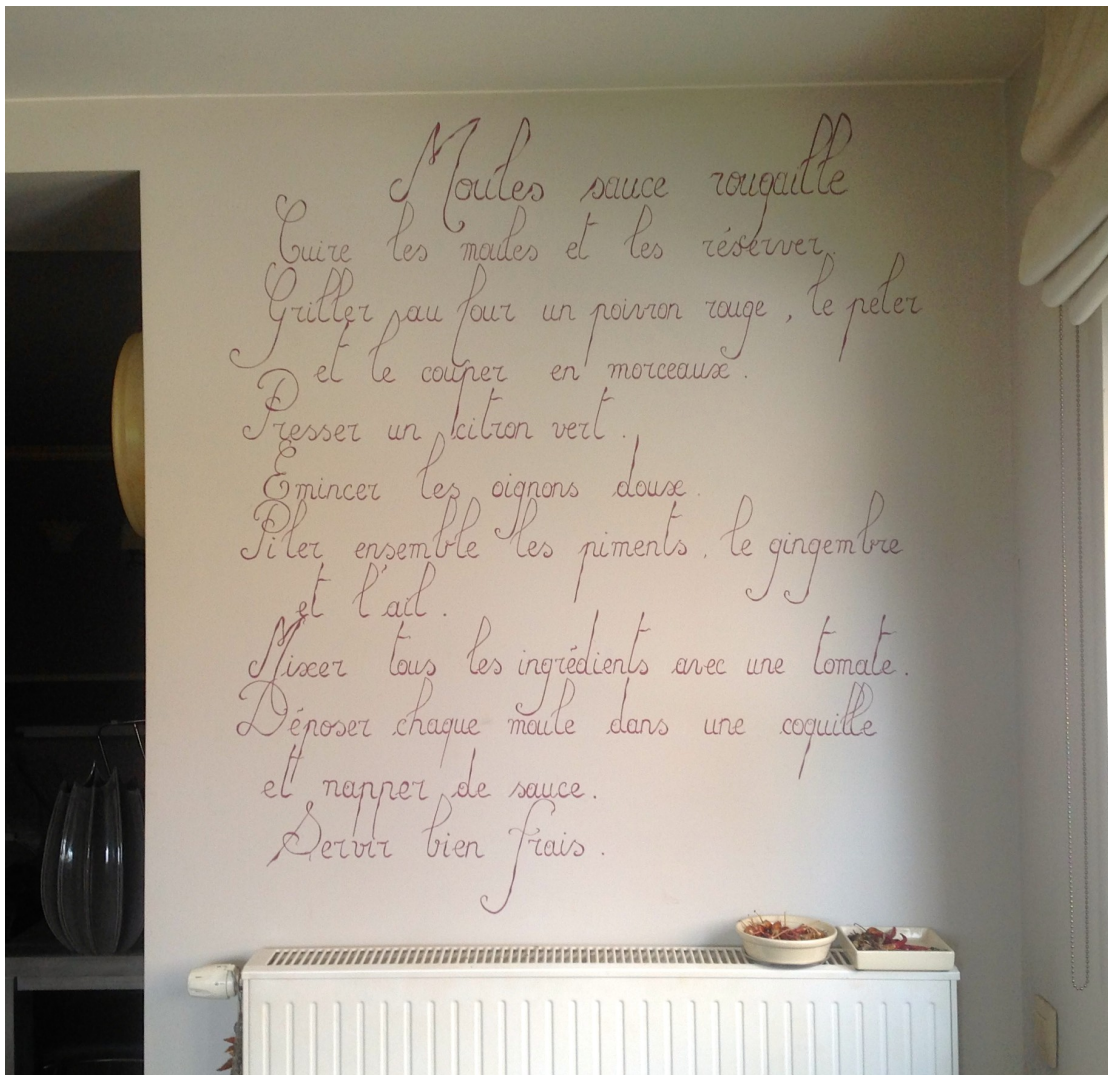 Moules sauce rougaille
Cuire les moules et les réserver.
Griller au four un poivron rouge, le peler
et le couper en morceaux.
Presser un citron vert.
Emincer les oignons doux.
Piler ensemble les piments, le gingembre
et l'ail.
Mixer tous les ingrédients avec une tomate.
Déposer chaque moule dans une coquille
et napper de sauce.
Servir bien frais.